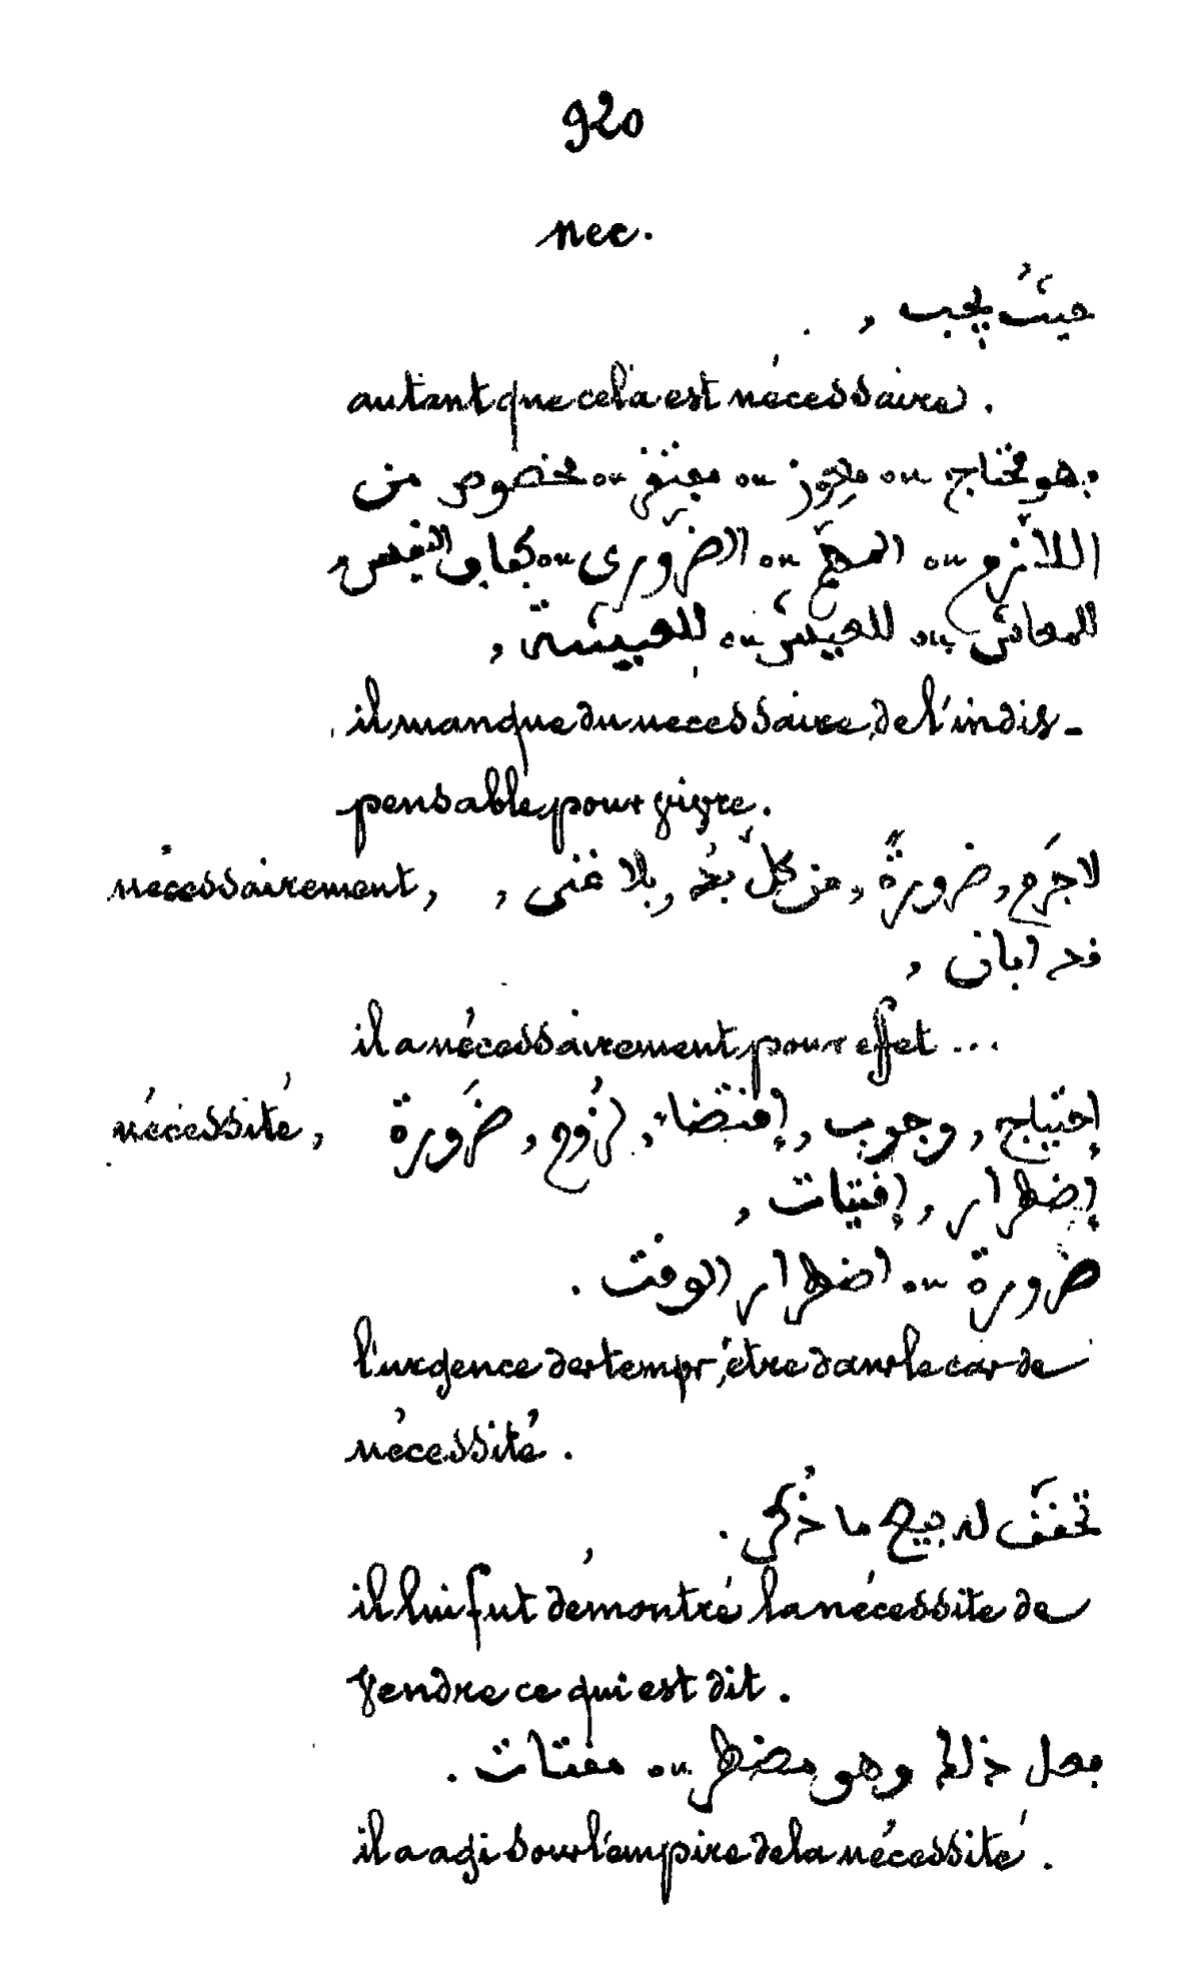 920
nec.
حيثُ يجب ,
autant que cela est nécessaire.
هو محتاج ou ou ou مخصوص من
اللاّزم ou المهمّ ou الضّرورى ou
للمعاش ou للعيش ou للعيشة ,
il manque du nécessaire, de l'indis-
pensable pour vivre.
nécessairement, لا جرَم, ضرورةً, من كلّ بُدّ, بلا غنى ,
فد ابان ,
il a nécessairement pour effet ...
nécessité, إحتياج, وجوب, إفتضاء, لزُوم, ضَرورة
إضطرار, إفتيات ,
ضرورة ou اضطرار الوفت .
l'urgence des temps, être dans le cas de
nécessité.
تحفّف له بيع ما ذُكر .
il lui fut démontré la nécessité de
vendre ce qui est dit.
بعل ذلك وهو مضطر ou مفتات .
il a agi sous l'empire de la nécessité.